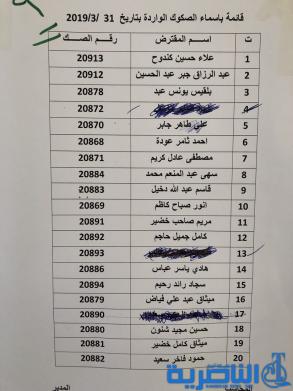 قائمة بأسماء الصكوك الواردة بتاريخ 31 /2019/3
ت اسم المقترض رقم الصك
1 علاء حسين كندوح 20913
2 عبد الرزاق جبر عبد الحسين 20912
3 بلقيس يونس عبد 20878
4 20872
5 علي طاهر جابر 20870
6 احمد ثامر عودة 20868
7 مصطفى عادل كريم 20871
8 سهى عبد المنعم محمد 20884
9 قاسم عبد الله دخيل 20883
10 انور صباح كاظم 20869
11 مريم صاحب خضير 20891
12 كامل جميل حاجم 20892
13 20893
14 هادي ياسر عباس 20886
15 سجاد رائد رحيم 20894
16 ميثاق عبد علي فياض 20879
17 20890
18 حسين مجيد شنون 20880
19 ميثاق كامل خضير 20881
20 حمود فاخر سعيد 20882
المدير
الناصرية